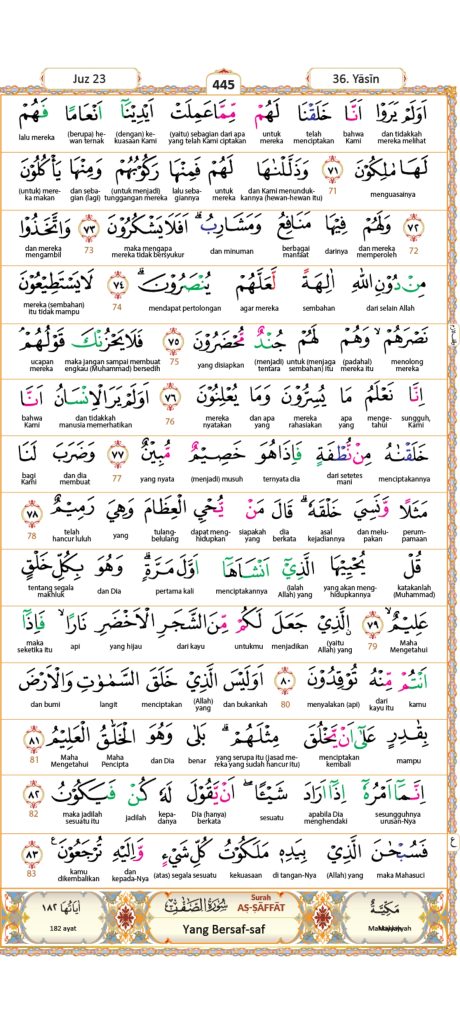 Juz 23
445
36. Yāsīn
اَوَلَمْ يَرَوْا اَنَّا خَلَقْنَا لَهُمْ مِّمَّا عَمِلَتْ اَيْدِيْنَآ اَنْعَامًا فَهُمْ
dan tidakkah mereka melihat bahwa Kami telah menciptakan untuk mereka (yaitu) sebagian dari apa yang telah Kami ciptakan (dengan) kekuasaan Kami (berupa) hewan ternak lalu mereka
لَهَا مٰلِكُوْنَ ٧١ وَذَلَّلْنٰهَا لَهُمْ فَمِنْهَا رَكُوْبُهُمْ وَمِنْهَا يَأْكُلُوْنَ
menguasainya 71 dan Kami menundukkannya (hewan-hewan itu) untuk mereka lalu sebagiannya (untuk menjadi) tunggangan mereka dan sebagian (lagi) (untuk) mereka makan
٧٢ وَلَهُمْ فِيْهَا مَنَافِعُ وَمَشَارِبُۗ اَفَلَا يَشْكُرُوْنَ ٧٣ وَاتَّخَذُوْا
72 dan mereka memperoleh darinya berbagai manfaat dan minuman maka mengapa mereka tidak bersyukur 73 dan mereka mengambil
مِنْ دُوْنِ اللّٰهِ اٰلِهَةً لَّعَلَّهُمْ يُنْصَرُوْنَۗ ٧٤ لَا يَسْتَطِيْعُوْنَ
dari selain Allah sembahan agar mereka mendapat pertolongan 74 mereka (sembahan) itu tidak mampu
نَصْرَهُمْۙ وَهُمْ لَهُمْ جُنْدٌ مُّحْضَرُوْنَ ٧٥ فَلَا يَحْزُنْكَ قَوْلُهُمْۘ
menolong mereka (padahal) mereka itu untuk (menjaga sembahan) itu (menjadi) tentara yang disiapkan 75 maka jangan sampai membuat engkau (Muhammad) bersedih ucapan mereka
اِنَّا نَعْلَمُ مَا يُسِرُّوْنَ وَمَا يُعْلِنُوْنَ ٧٦ اَوَلَمْ يَرَ الْاِنْسَانُ اَنَّا
sungguh, Kami mengetahui apa yang mereka rahasiakan dan apa yang mereka nyatakan 76 dan tidakkah manusia memerhatikan bahwa Kami
خَلَقْنٰهُ مِنْ نُّطْفَةٍ فَاِذَا هُوَ خَصِيْمٌ مُّبِيْنٌ ٧٧ وَضَرَبَ لَنَا
menciptakannya dari setetes mani ternyata dia (menjadi) musuh yang nyata 77 dan dia membuat bagi Kami
مَثَلًا وَّنَسِيَ خَلْقَهٗۗ قَالَ مَنْ يُّحْيِ الْعِظَامَ وَهِيَ رَمِيْمٌ ٧٨
perumpamaan dan melupakan asal kejadiannya dia berkata siapakah yang dapat menghidupkan tulang-belulang yang telah hancur luluh 78
قُلْ يُحْيِيْهَا الَّذِيْٓ اَنْشَاَهَآ اَوَّلَ مَرَّةٍۗ وَهُوَ بِكُلِّ خَلْقٍ
katakanlah (Muhammad) yang akan menghidupkannya (ialah Allah) yang menciptakannya pertama kali dan Dia tentang segala makhluk
عَلِيْمٌۙ ٧٩ الَّذِيْ جَعَلَ لَكُمْ مِّنَ الشَّجَرِ الْاَخْضَرِ نَارًاۙ فَاِذَآ
Maha Mengetahui 79 (yaitu Allah) yang menjadikan untukmu dari kayu yang hijau api maka seketika itu
اَنْتُمْ مِّنْهُ تُوْقِدُوْنَ ٨٠ اَوَلَيْسَ الَّذِيْ خَلَقَ السَّمٰوٰتِ وَالْاَرْضَ
kamu dari kayu itu menyalakan (api) 80 dan bukankah (Allah) yang menciptakan langit dan bumi
بِقٰدِرٍ عَلٰٓى اَنْ يَّخْلُقَ مِثْلَهُمْۗ بَلٰى وَهُوَ الْخَلّٰقُ الْعَلِيْمُ ٨١
mampu menciptakan kembali yang serupa itu (jasad mereka yang sudah hancur itu) benar dan Dia Maha Pencipta Maha Mengetahui 81
اِنَّمَآ اَمْرُهٗٓ اِذَآ اَرَادَ شَيْـًٔاۖ اَنْ يَّقُوْلَ لَهٗ كُنْ فَيَكُوْنُ ٨٢
sesungguhnya urusan-Nya apabila Dia menghendaki sesuatu Dia (hanya) berkata kepadanya jadilah maka jadilah sesuatu itu 82
فَسُبْحٰنَ الَّذِيْ بِيَدِهٖ مَلَكُوْتُ كُلِّ شَيْءٍ وَّاِلَيْهِ تُرْجَعُوْنَ ٨٣
maka Mahasuci (Allah) yang di tangan-Nya kekuasaan (atas) segala sesuatu dan kepada-Nya kamu dikembalikan 83
ع
مَكِّيَّةٌ
Surah AṢ-ṢĀFFĀT
سُوْرَةُ الصّٰۤفّٰتِ
اٰيَاتُهَا ١٨٢
Yang Bersaf-saf
182 ayat